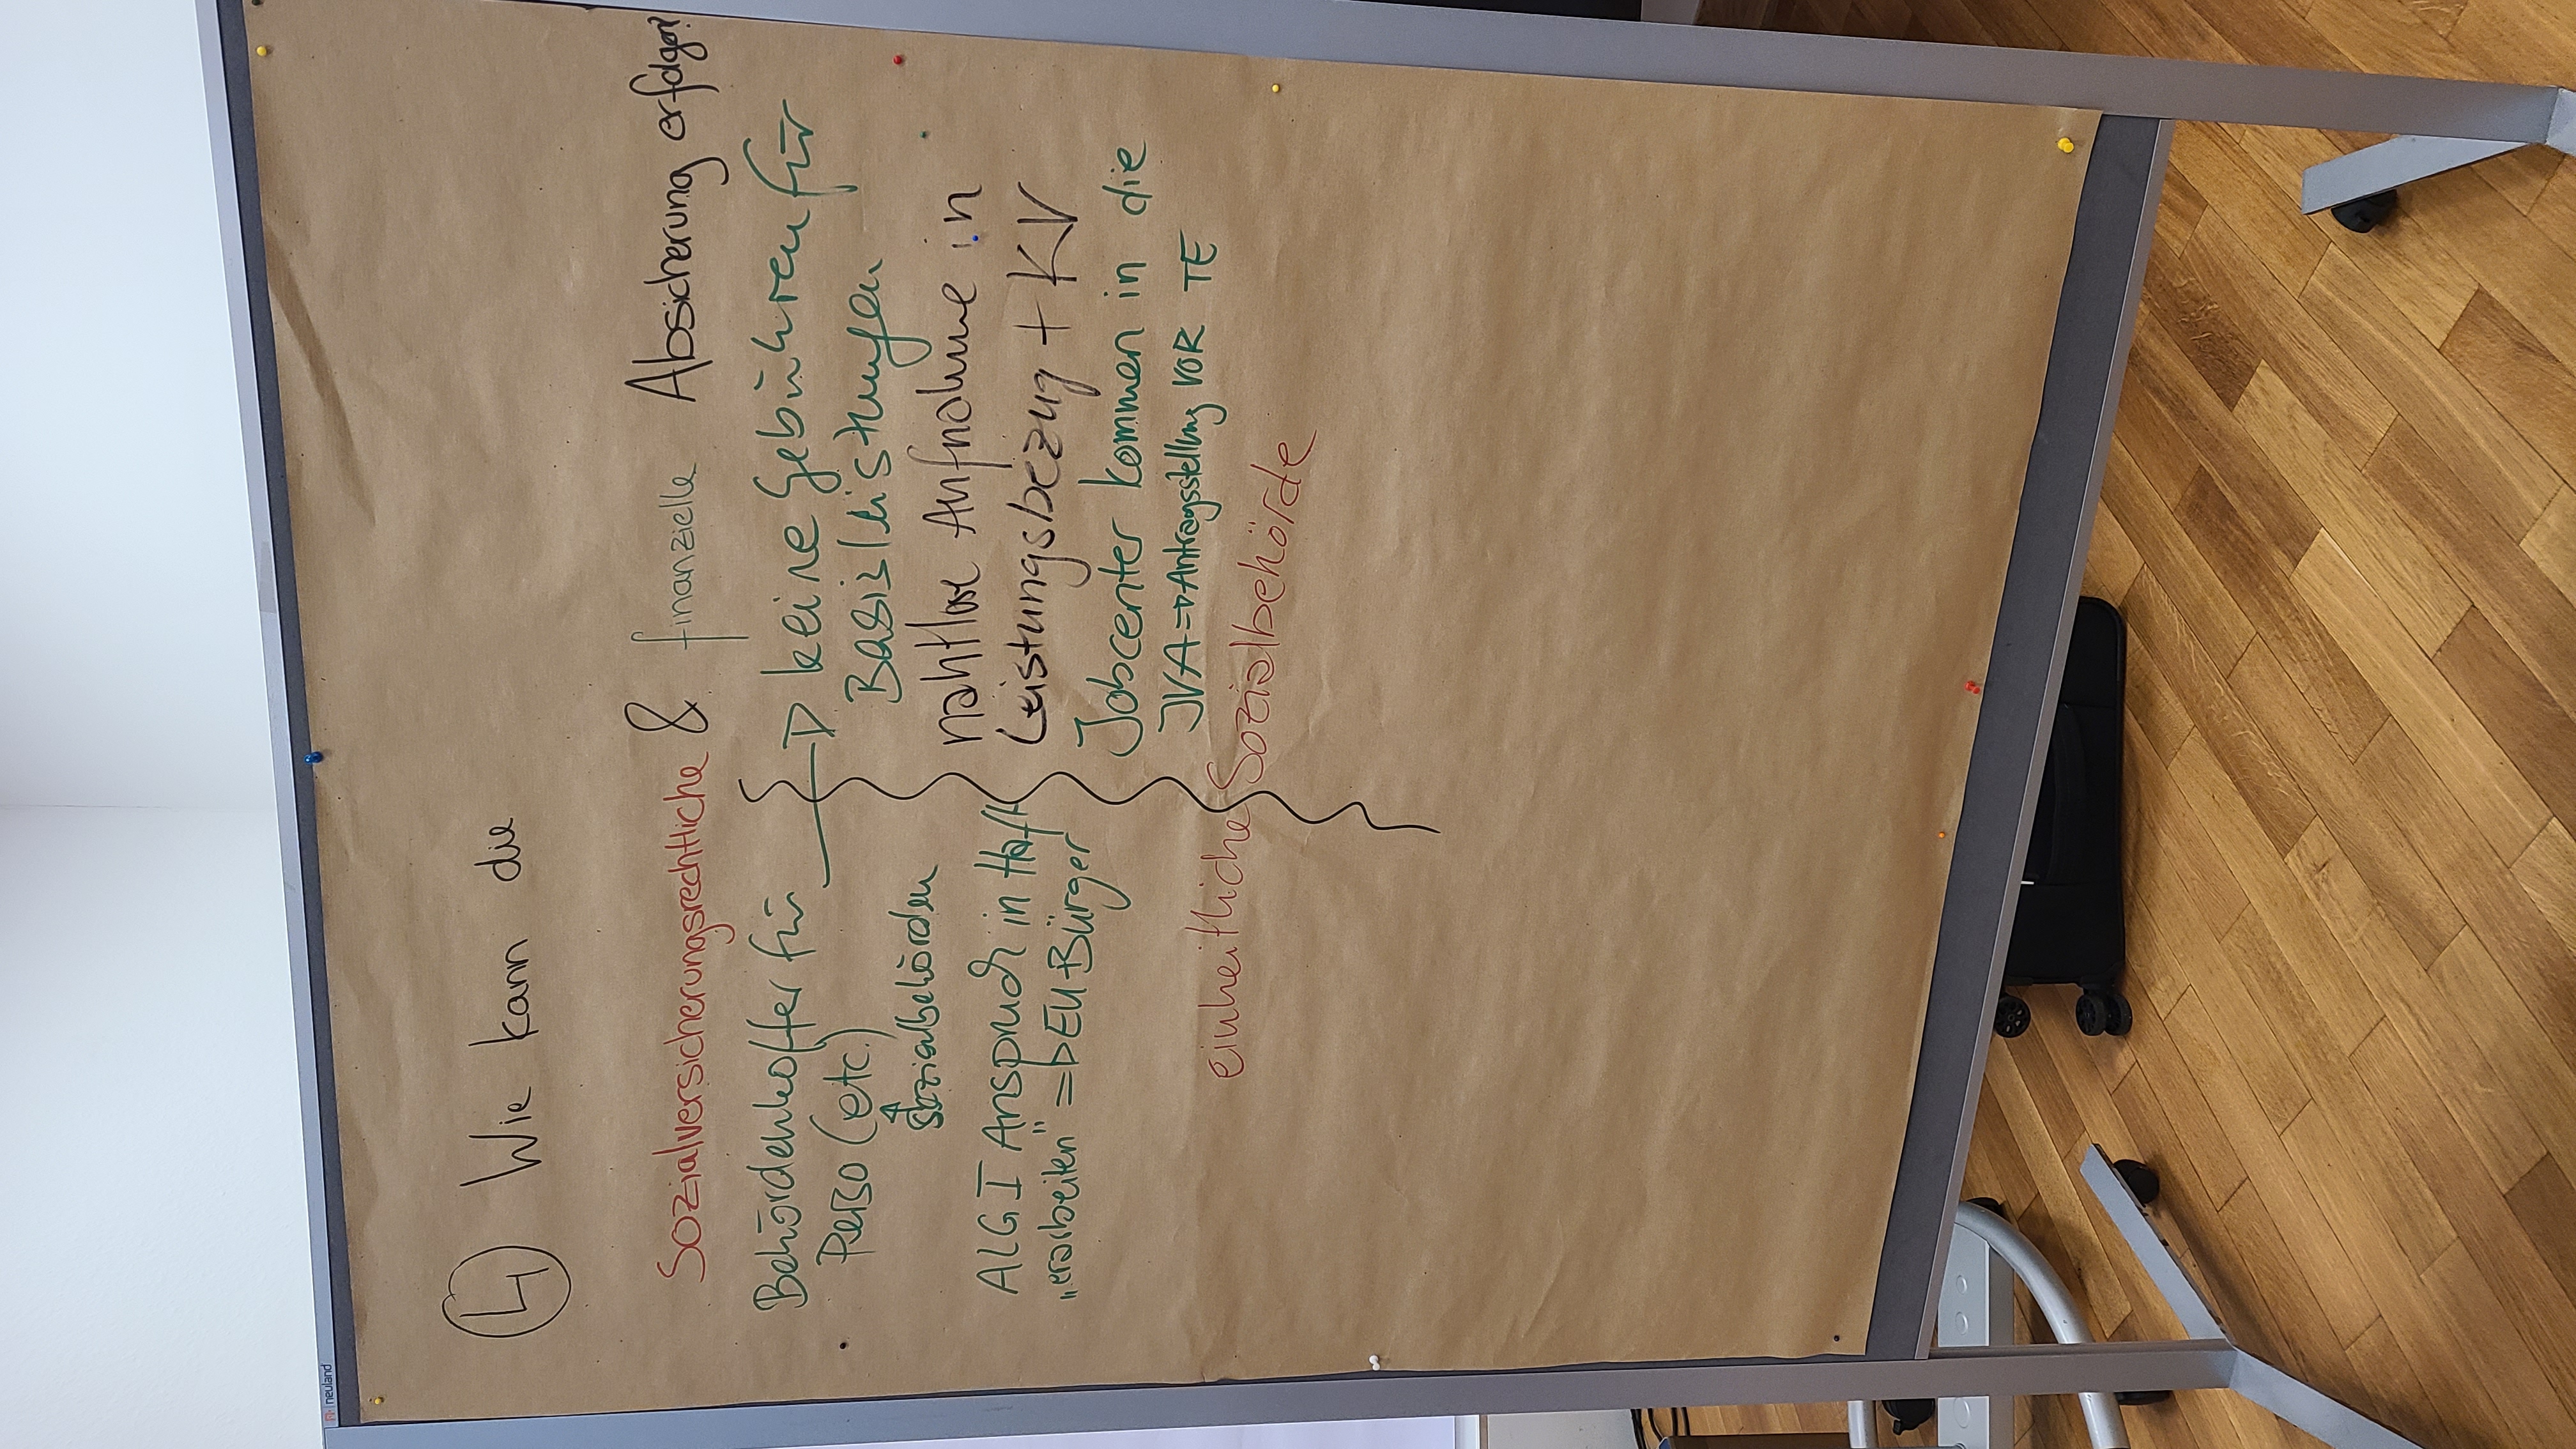 neuland
4 Wie kann die
sozialversicherungsrechtliche & finanzielle Absicherung erfolgen?
Behördenkoffer für
Perso (etc.)
Sozialbehörden
ALG I Anspruch in Haft
„erarbeiten" => EU-Bürger
keine Gebühren für
Basisleistungen
nahtlose Aufnahme in
Leistungsbezug + KV
Jobcenter kommen in die
JVA => Antragsstellung VOR TE
einheitliche Sozialbehörde